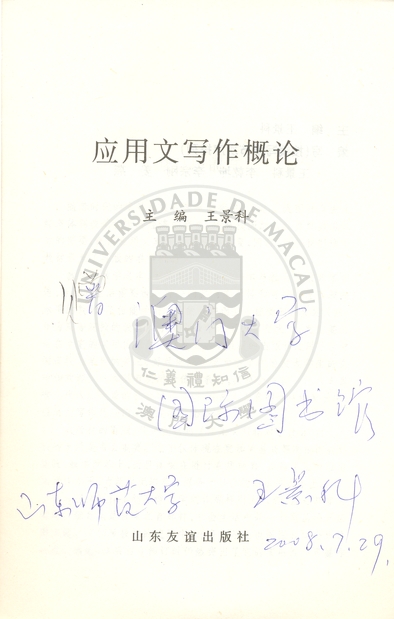 应用文写作概论
主 编 王景科
UNIVERSIDADE DE MACAU
澳门大学
仁義禮知信
国际图书馆
澳門大學
山东师范大学 王景科
山东友谊出版社
2008.7.29.